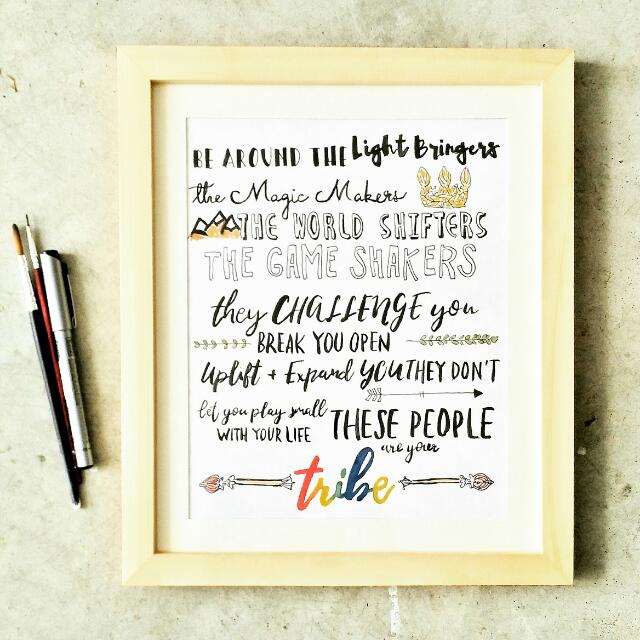 BE AROUND THE Light Bringers
the Magic Makers
THE WORLD SHIFTERS
THE GAME SHAKERS
they CHALLENGE you
BREAK YOU OPEN
Uplift + Expand YOU THEY DON'T
let you play small
WITH YOUR LIFE THESE PEOPLE
are your
tribe